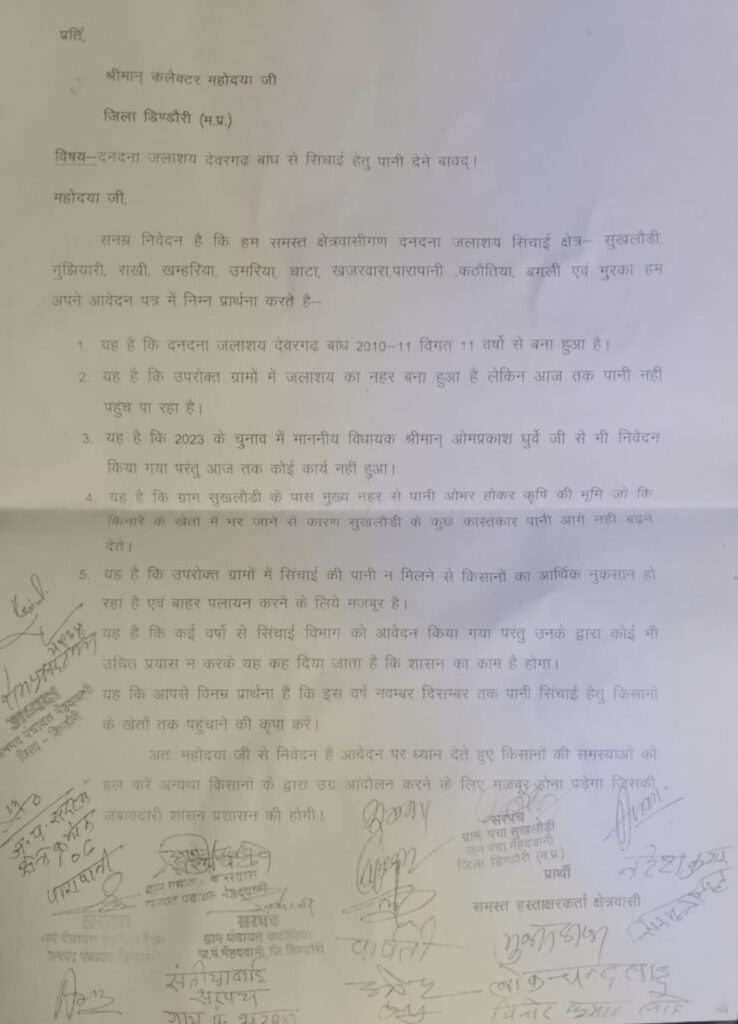 प्रति,
श्रीमान् कलेक्टर महोदया जी
जिला डिण्डौरी (म.प्र.)
विषय–दनदना जलाशय देवरगढ़ बांध से सिंचाई हेतु पानी देने बावद्।
महोदया जी,
सनम्र निवेदन है कि हम समस्त क्षेत्रवासीगण दनदना जलाशय सिंचाई क्षेत्र– सुखलौडी,
गुंझियारी, राखी, खम्हरिया, उमरिया, चाटा, खजरवारा,पारापानी ,कठौतिया, बगली एवं भुरका हम
अपने आवेदन पत्र में निम्न प्रार्थना करते है–
1. यह है कि दनदना जलाशय देवरगढ़ बांध 2010–11 विगत 11 वर्षो से बना हुआ है।
2. यह है कि उपरोक्त ग्रामों में जलाशय का नहर बना हुआ है लेकिन आज तक पानी नहीं
पहुंच पा रहा है।
3. यह है कि 2023 के चुनाव में माननीय विधायक श्रीमान् ओमप्रकाश धुर्वे जी से भी निवेदन
किया गया परंतु आज तक कोई कार्य नहीं हुआ।
4. यह है कि ग्राम सुखलौडी के पास मुख्य नहर से पानी ओभर होकर कृषि की भूमि जो कि
किनारे के खेतो में भर जाने से कारण सुखलौडी के कुछ कास्तकार पानी आगे नहीं बढ़ने
देते।
5. यह है कि उपरोक्त ग्रामों में सिंचाई की पानी न मिलने से किसानों का आर्थिक नुकसान हो
रहा है एवं बाहर पलायन करने के लिये मजबूर है।
यह है कि कई वर्षो से सिंचाई विभाग को आवेदन किया गया परंतु उनके द्वारा कोई भी
उचित प्रयास न करके यह कह दिया जाता है कि शासन का काम है होगा।
यह कि आपसे विनम्र प्रार्थना है कि इस वर्ष नवम्बर दिसम्बर तक पानी सिंचाई हेतु किसानों
के खेतों तक पहुंचाने की कृपा करें।
अतः महोदया जी से निवेदन है आवेदन पर ध्यान देते हुए किसानों की समस्याओं को
हल करें अन्यथा किसानों के द्वारा उग्र आदोलन करने के लिए मजबूर होना पड़ेगा जिसकी
जबावदारी शासन प्रशासन की होगी।
सरपंच
ग्राम पंचा सुखलौडी
जन पंचा मेंहदवानी
जिला डिण्डौरी (म.प्र.)
प्रार्थी
समस्त हस्ताक्षरकर्ता क्षेत्रवासी
पारापानी
सरपंच
ग्राम पंचायत कठौतिया
ज.पं.मेंहदवानी, जि.डिण्डौरी
पार्वती
सरपंच